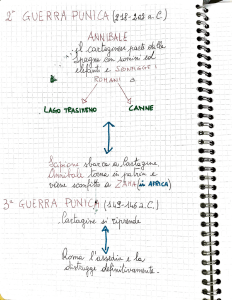 2ª GUERRA PUNICA (218-202 a.C.)
ANNIBALE
il cartaginese parte dalla
Spagna con uomini ed
elefanti e SCONFIGGE I
ROMANI a
LAGO TRASIMENO CANNE
Scipione sbarca a Cartagine,
Annibale torna in patria e
viene sconfitto a ZAMA (in AFRICA)
3ª GUERRA PUNICA (149-146 a.C.)
Cartagine si riprende
Roma l'assedia e la
distrugge definitivamente.